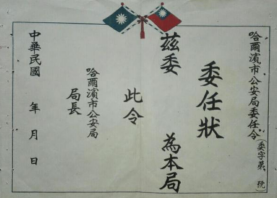 哈爾濱市公安局委任令(委字第 號)
委任狀
茲委 為本局
此令
哈爾濱市公安局
局長
中華民國 年 月 日